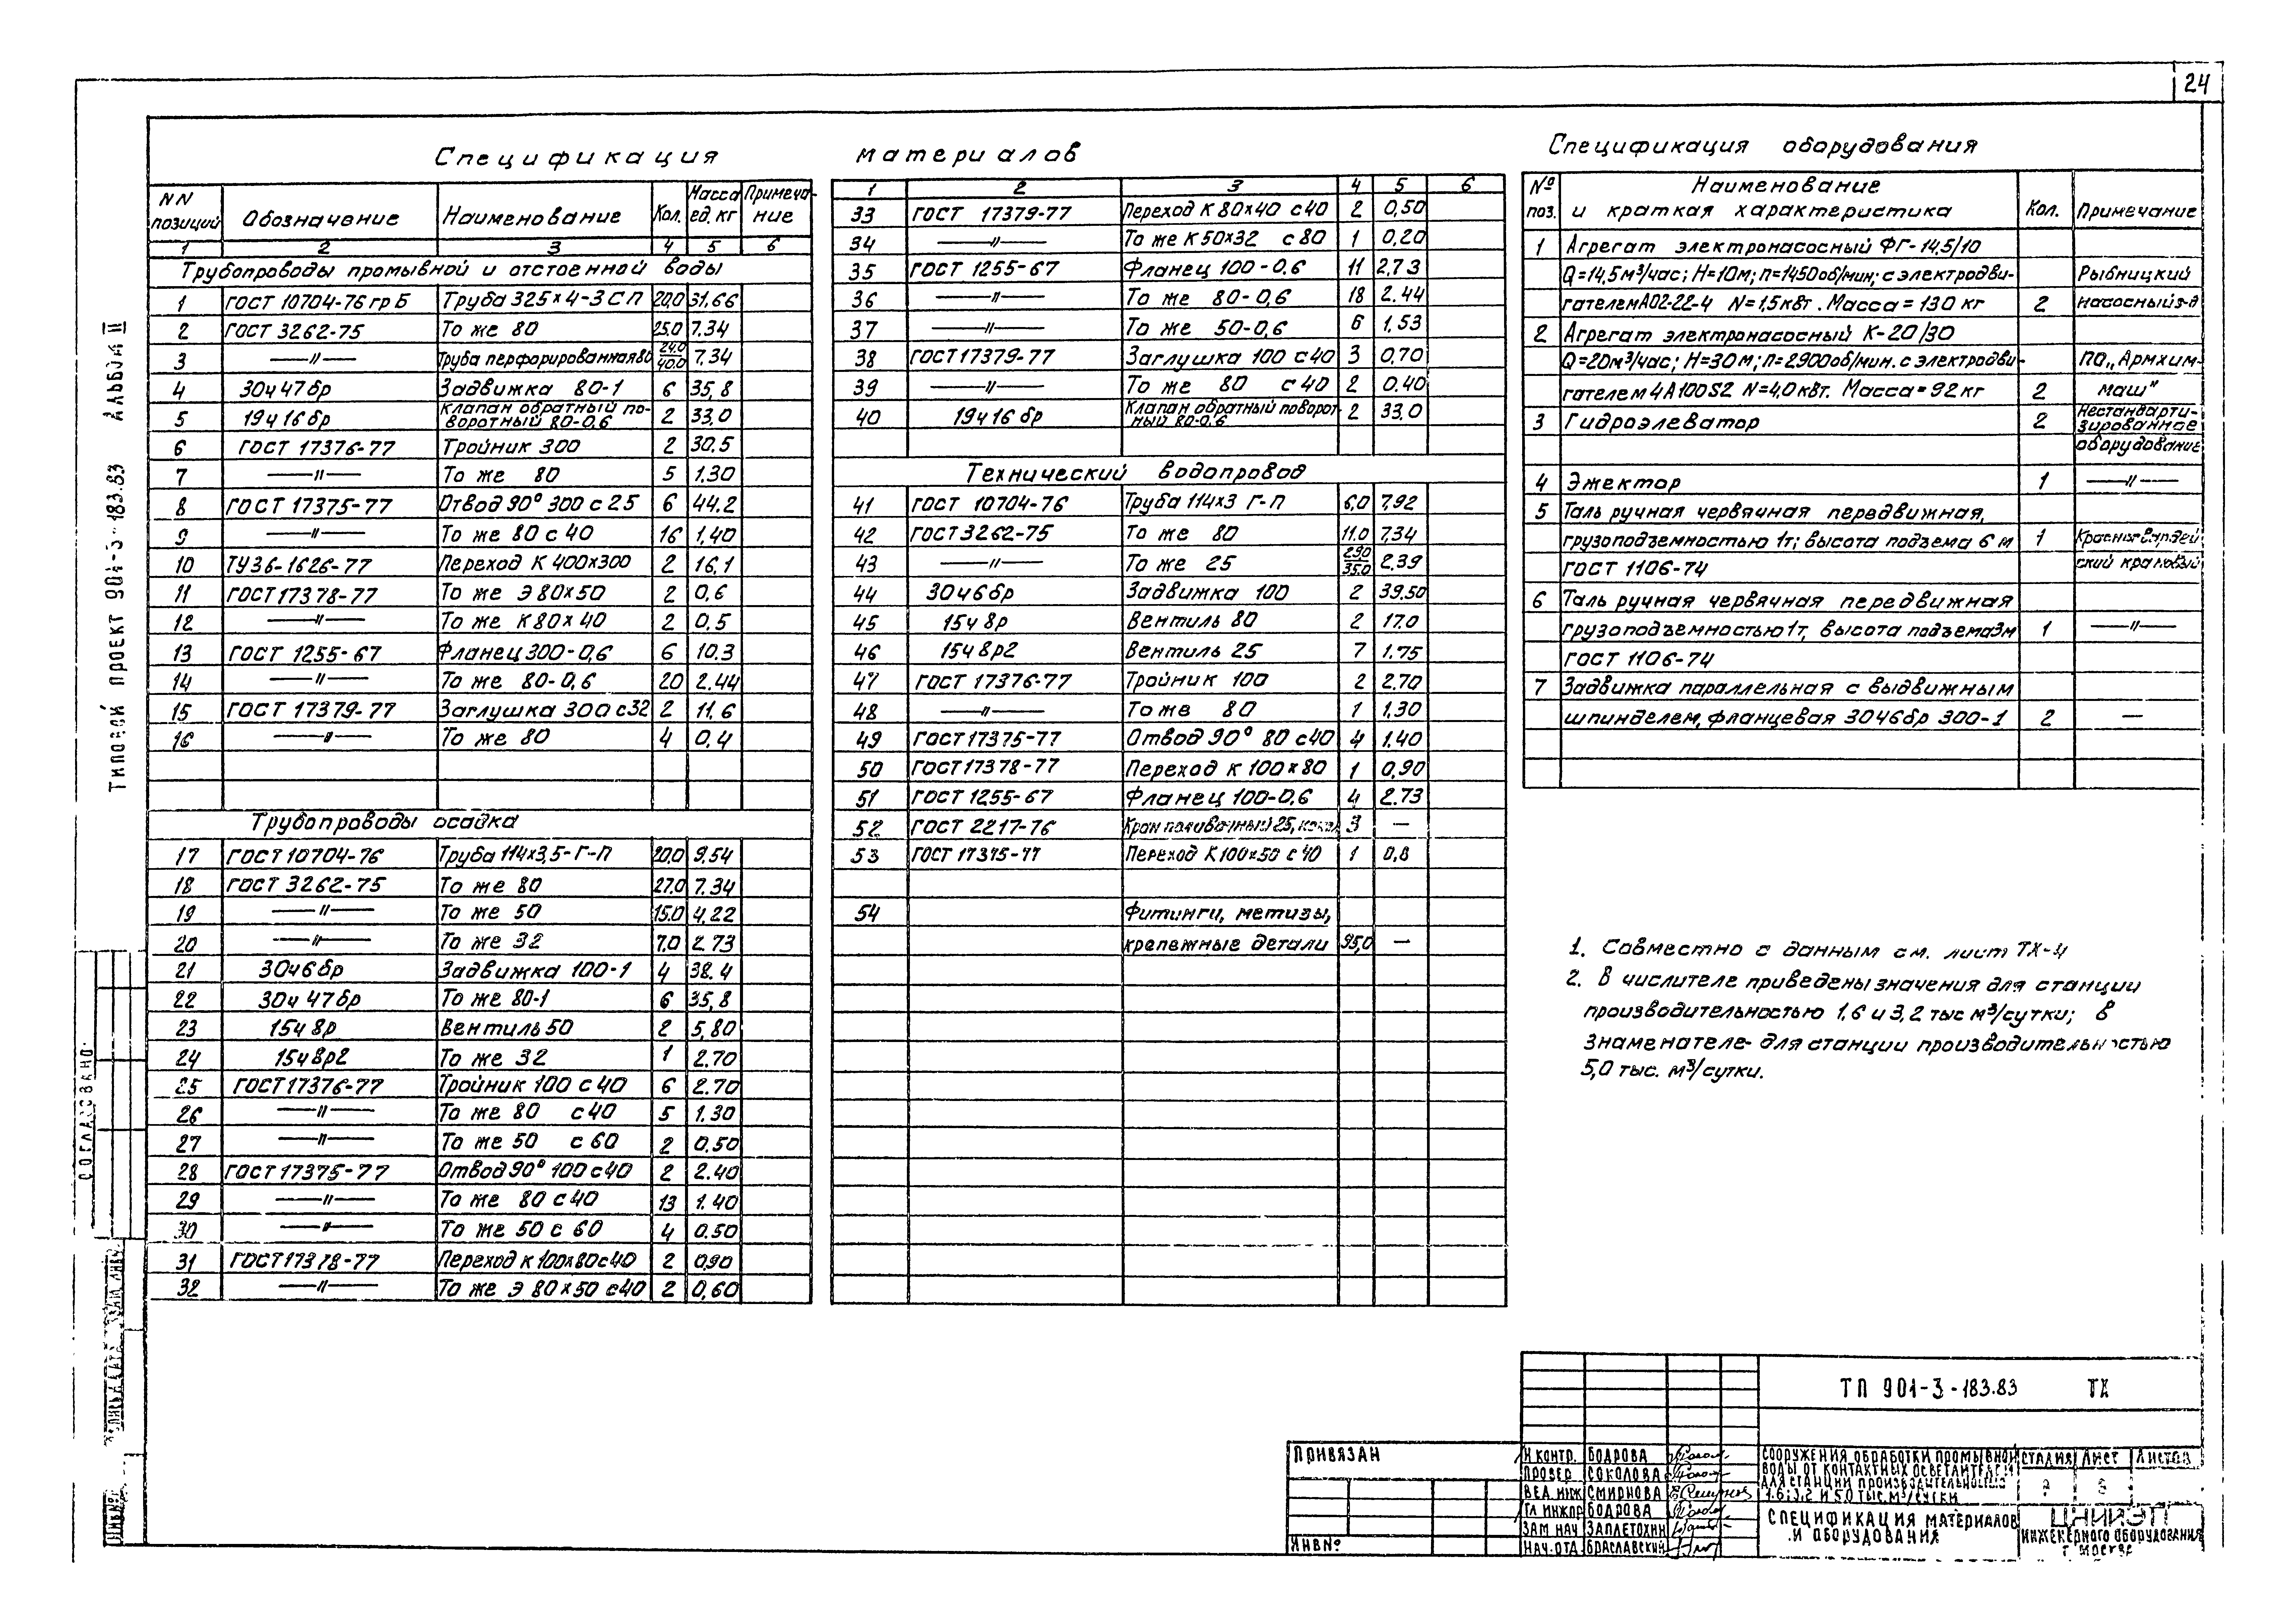 24
Спецификация материалов
NN позиций Обозначение Наименование Кол. Масса ед. кг Примечание
1 2 3 4 5 6
Трубопроводы промывной и отстоенной воды
1 ГОСТ 10704-76 гр Б Труба 325×4-3 СП 20,0 31.66
2 ГОСТ 3262-75 То же 80 25.0 7.34
3 —〃— Труба перфорированная 80 24.0/40.0 7.34
4 30ч 47 бр Задвижка 80-1 6 35,8
5 19ч 16 бр Клапан обратный поворотный 80-0,6 2 33,0
6 ГОСТ 17376-77 Тройник 300 2 30.5
7 —〃— То же 80 5 1.30
8 ГОСТ 17375-77 Отвод 90° 300 с 25 6 44.2
9 —〃— То же 80 с 40 16 1,40
10 ТУ36-1626-77 Переход К 400×300 2 16,1
11 ГОСТ 17378-77 То же Э 80×50 2 0,6
12 —〃— То же К 80×40 2 0.5
13 ГОСТ 1255-67 Фланец 300-0,6 6 10.3
14 —〃— То же 80-0,6 20 2.44
15 ГОСТ 17379-77 Заглушка 300 с32 2 11,6
16 —〃— То же 80 4 0,4
Трубопроводы осадка
17 ГОСТ 10704-76 Труба 114×3,5-Г-П 20,0 9.54
18 ГОСТ 3262-75 То же 80 27.0 7.34
19 —〃— То же 50 15.0 4,22
20 —〃— То же 32 7,0 2.73
21 30ч6бр Задвижка 100-1 4 38.4
22 30ч 47бр То же 80-1 6 35,8
23 15ч 8р Вентиль 50 2 5,80
24 15ч 8р2 То же 32 1 2.70
25 ГОСТ 17376-77 Тройник 100 с 40 6 2.70
26 —〃— То же 80 с40 5 1.30
27 —〃— То же 50 с 60 2 0.50
28 ГОСТ 17375-77 Отвод 90° 100 с40 2 2.40
29 —〃— То же 80 с 40 13 1.40
30 —〃— То же 50 с 60 4 0.50
31 ГОСТ 17378-77 Переход К 100×80с40 2 0,90
32 —〃— То же Э 80×50 с40 2 0,60
1 2 3 4 5 6
33 ГОСТ 17379-77 Переход К 80×40 с40 2 0,50
34 —〃— То же К 50×32 с 80 1 0,20
35 ГОСТ 1255-67 Фланец 100-0,6 11 2,73
36 —〃— То же 80-0,6 18 2.44
37 —〃— То же 50-0,6 6 1.53
38 ГОСТ 17379-77 Заглушка 100 с40 3 0,70
39 —〃— То же 80 с 40 2 0.40
40 19ч 16 бр Клапан обратный поворотный 80-0,6 2 33,0
Технический водопровод
41 ГОСТ 10704-76 Труба 114×3 Г-П 6,0 7,92
42 ГОСТ 3262-75 То же 80 11.0 7,34
43 —〃— То же 25 29.0/35.0 2.39
44 30ч6бр Задвижка 100 2 39.50
45 15ч 8р Вентиль 80 2 17.0
46 15ч 8р2 Вентиль 25 7 1.75
47 ГОСТ 17376-77 Тройник 100 2 2.70
48 —〃— То же 80 1 1,30
49 ГОСТ 17375-77 Отвод 90° 80 с40 4 1.40
50 ГОСТ 17378-77 Переход К 100×80 1 0,90
51 ГОСТ 1255-67 Фланец 100-0,6 4 2.73
52 ГОСТ 2217-76 Кран поливочный 25, 3 —
53 ГОСТ 17375-77 Переход К 100×50 с 40 1 0,8
54 Фитинги, метизы,
крепежные детали 95,0 —
Спецификация оборудования
№ поз. Наименование и краткая характеристика Кол. Примечание
1 Агрегат электронасосный ФГ-14,5/10
Q=14,5м³/час; Н=10м; n=1450об/мин; с электродви- Рыбницкий
гателем АО2-22-4 N=1,5кВт. Масса=130 кг 2 насосный з-д
2 Агрегат электронасосный К-20/30
Q=20м³/час; Н=30м; n=2900об/мин. с электродви- по „Армхим-
гателем 4А100S2 N=4,0кВт. Масса=92 кг 2 маш"
3 Гидроэлеватор 2 Нестандарти-
зированное
оборудование
4 Эжектор 1 —〃—
5 Таль ручная червячная передвижная,
грузоподъемностью 1т; высота подъема 6 м 1 Красногвардей
ГОСТ 1106-74 ский крановый
6 Таль ручная червячная передвижная
грузоподъемностью 1т, высота подъема 3м 1 —〃—
ГОСТ 1106-74
7 Задвижка параллельная с выдвижным
шпинделем, фланцевая 30ч6бр 300-1 2 —
1. Совместно с данным см. лист ТХ-4
2. В числителе приведены значения для станции
производительностью 1,6 и 3,2 тыс м³/сутки; в
знаменателе- для станции производительностью
5,0 тыс. м³/сутки.
ТИПОВОЙ ПРОЕКТ 901-3-183.83 АЛЬБОМ II
СОГЛАСОВАНО:
ИНВ №
ТП 901-3-183.83 ТХ
ПРИВЯЗАН
ИНВ №
Н КОНТР. БОДРОВА
ПРОВЕР СОКОЛОВА
ВЕД. ИНЖ СМИРНОВА
ГЛ ИНЖ ПР БОДРОВА
ЗАМ НАЧ ЗАПЛЕТОХИН
НАЧ. ОТД БРАСЛАВСКИЙ
СООРУЖЕНИЯ ОБРАБОТКИ ПРОМЫВНОЙ
ВОДЫ ОТ КОНТАКТНЫХ ОСВЕТЛИТЕЛЕЙ
ДЛЯ СТАНЦИИ ПРОИЗВОДИТЕЛЬНОСТЬЮ
1.6; 3,2 И 5.0 ТЫС. М³/СУТКИ
СТАДИЯ ЛИСТ ЛИСТОВ
СПЕЦИФИКАЦИЯ МАТЕРИАЛОВ
И ОБОРУДОВАНИЯ
ЦНИИЭП
ИНЖЕНЕРНОГО ОБОРУДОВАНИЯ
Г. МОСКВА